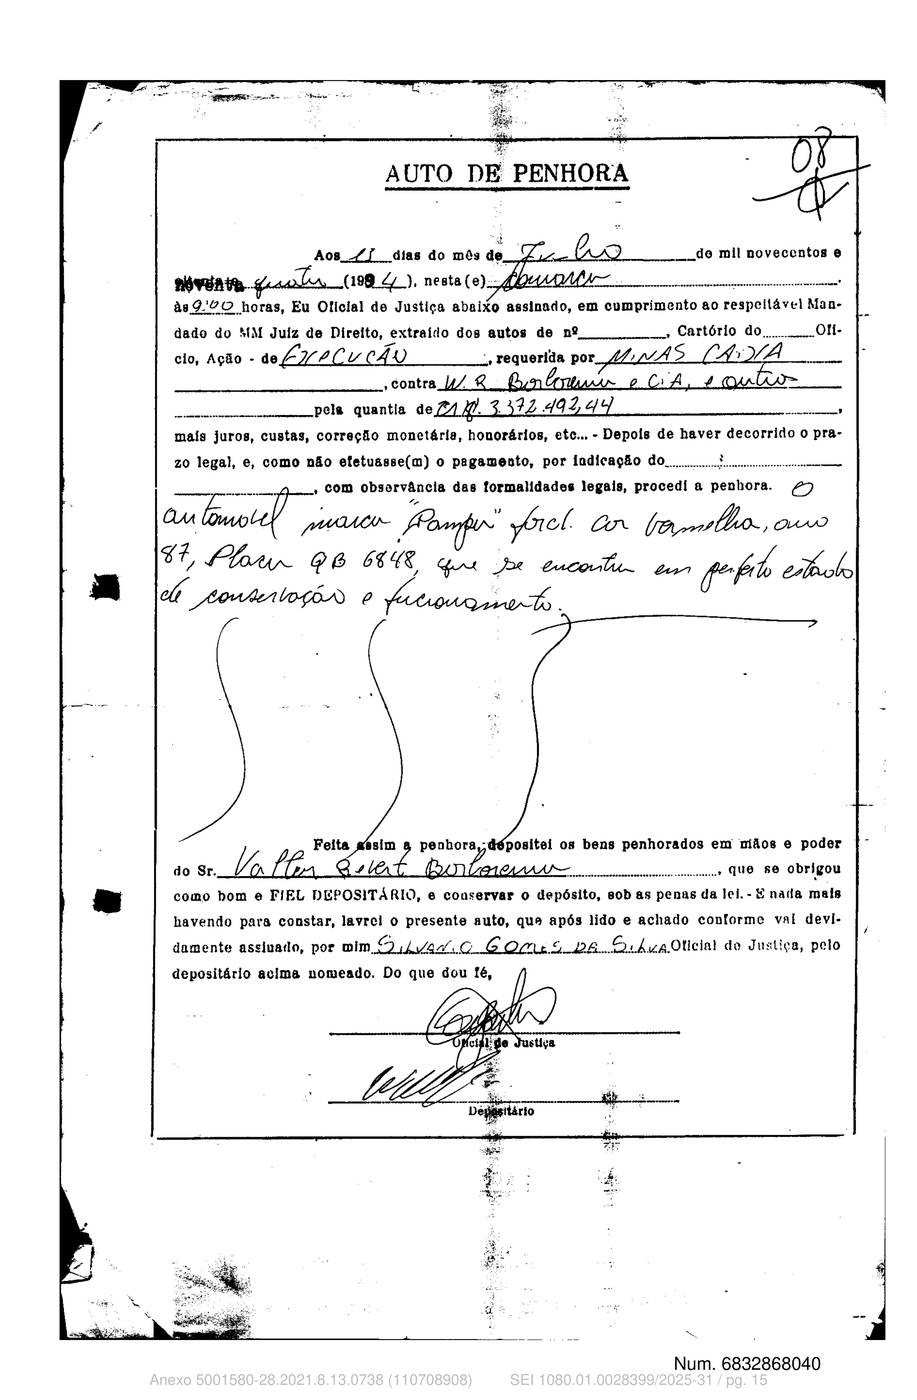 08
AUTO DE PENHORA
Aos dias do mês de Junho de mil novecentos e
noventa quatro (1994), nesta(e) Comarca .
às 9:00 horas, Eu Oficial de Justiça abaixo assinado, em cumprimento ao respeitável Man-
dado do MM Juiz de Direito, extraído dos autos de nº , Cartório do Ofí-
cio, Ação - de EXECUÇÃO , requerida por MINAS CAIXA
, contra W. R e CIA, e outros
pela quantia de 3.372.492,44 ,
mais juros, custas, correção monetária, honorários, etc... - Depois de haver decorrido o pra-
zo legal, e, como não efetuasse(m) o pagamento, por indicação do
, com observância das formalidades legais, procedi a penhora. O
automovel marca "Pampa" ford. cor vermelha, ano
87, Placa QB 6848, que se encontra em perfeito estado
de conservação e funcionamento.
Feita assim a penhora, depositei os bens penhorados em mãos e poder
do Sr. , que se obrigou
como bom e FIEL DEPOSITÁRIO, e conservar o depósito, sob as penas da lei. - E nada mais
havendo para constar, lavrei o presente auto, que após lido e achado conforme vai devi-
damente assinado, por mim SILVANIO GOMES DA SILVA Oficial de Justiça, pelo
depositário acima nomeado. Do que dou fé,
Oficial de Justiça
Depositário
Num. 6832868040
Anexo 5001580-28.2021.8.13.0738 (110708908) SEI 1080.01.0028399/2025-31 / pg. 15